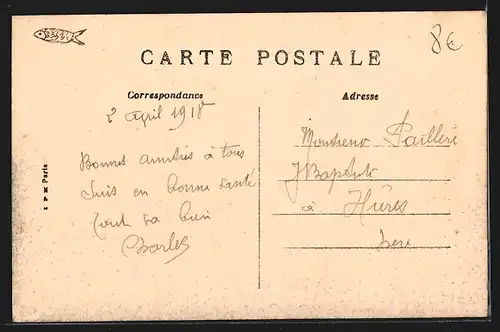 8€
CARTE POSTALE
Correspondance
Adresse
2 april 1918
Monsieur Pailleri
JBaptist
à Hières
Isere
Bonnes amitiés a tous
Suis en bonne santé
Tout va bien
Charles
I P M Paris